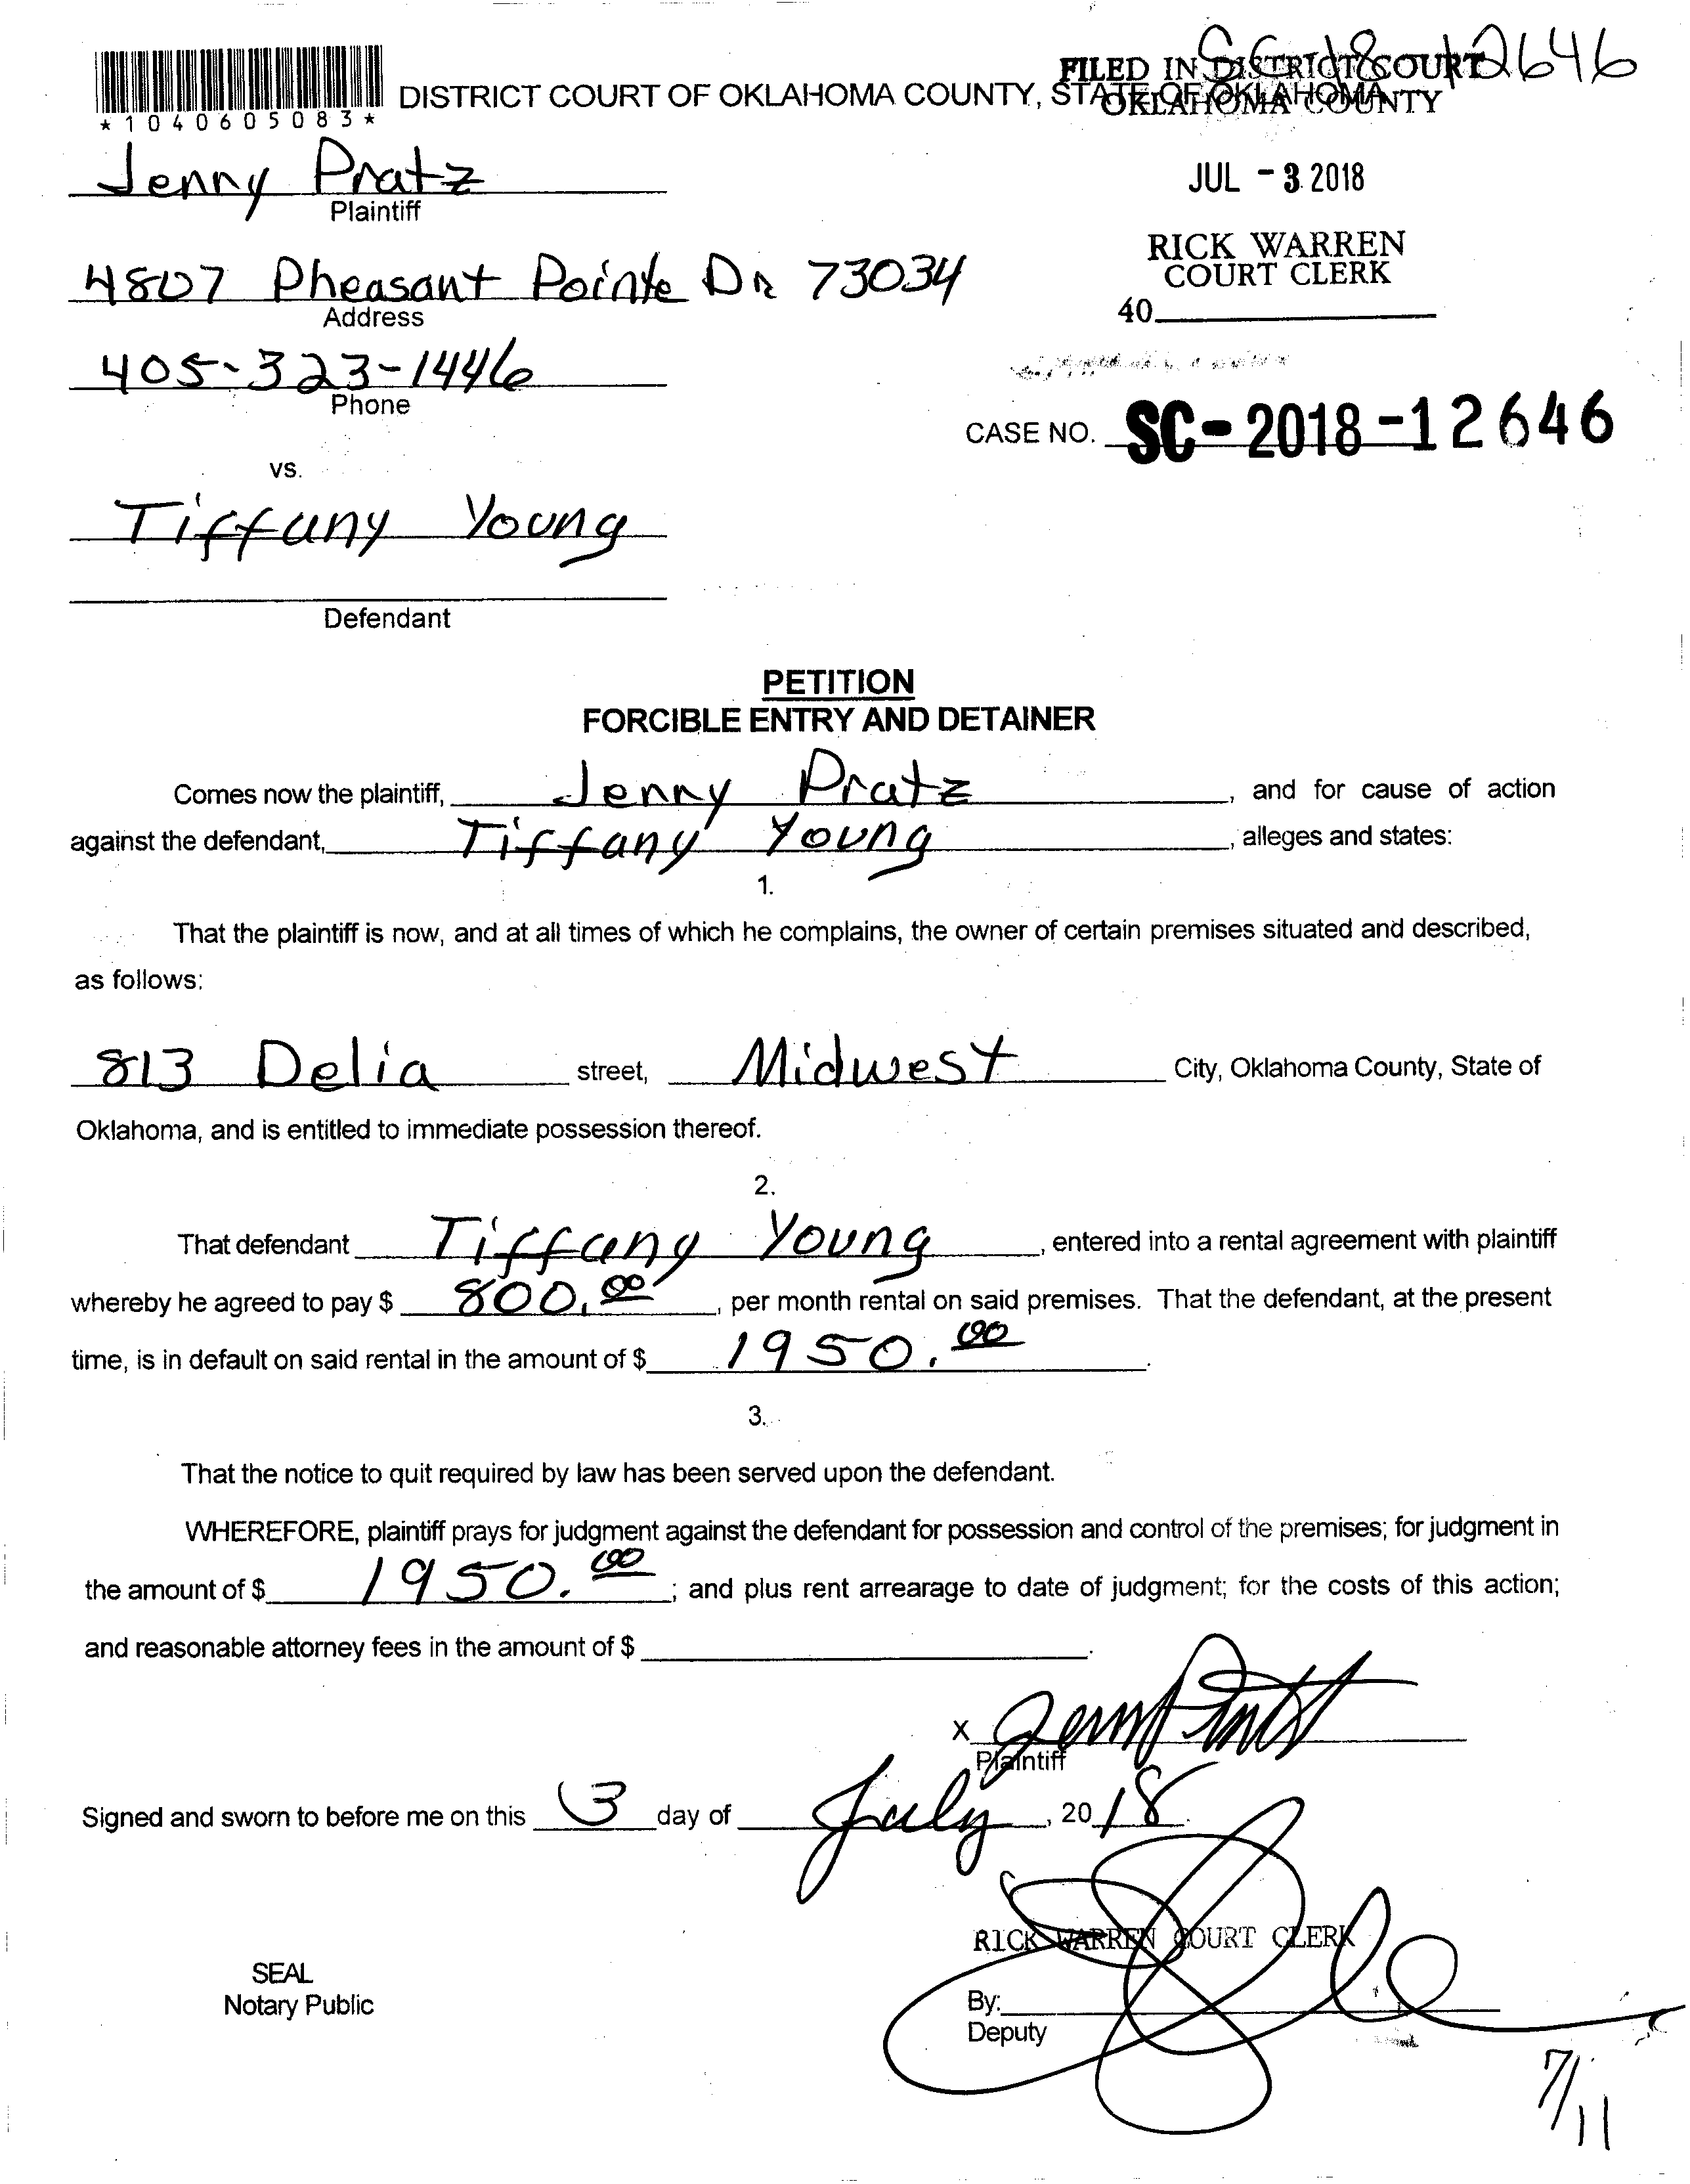 SC 18 12646
FILED IN DISTRICT COURT
DISTRICT COURT OF OKLAHOMA COUNTY, STATE OF OKLAHOMA
OKLAHOMA COUNTY
*1040605083*
Jenny Pratz
Plaintiff
JUL - 3 2018
RICK WARREN
COURT CLERK
4807 Pheasant Pointe Dr 73034
Address
40
405-323-1446
Phone
CASE NO. SC-2018-12646
vs.
Tiffany Young
Defendant
PETITION
FORCIBLE ENTRY AND DETAINER
Comes now the plaintiff, Jenny Pratz, and for cause of action
against the defendant, Tiffany Young, alleges and states:
1.
That the plaintiff is now, and at all times of which he complains, the owner of certain premises situated and described,
as follows:
813 Delia street, Midwest City, Oklahoma County, State of
Oklahoma, and is entitled to immediate possession thereof.
2.
That defendant Tiffany Young, entered into a rental agreement with plaintiff
whereby he agreed to pay $ 800.00, per month rental on said premises. That the defendant, at the present
time, is in default on said rental in the amount of $ 1950.00.
3.
That the notice to quit required by law has been served upon the defendant.
WHEREFORE, plaintiff prays for judgment against the defendant for possession and control of the premises; for judgment in
the amount of $ 1950.00; and plus rent arrearage to date of judgment; for the costs of this action;
and reasonable attorney fees in the amount of $ .
X
Plaintiff
Signed and sworn to before me on this 3 day of July, 2018.
RICK WARREN COURT CLERK
SEAL
Notary Public
By:
Deputy
7/11